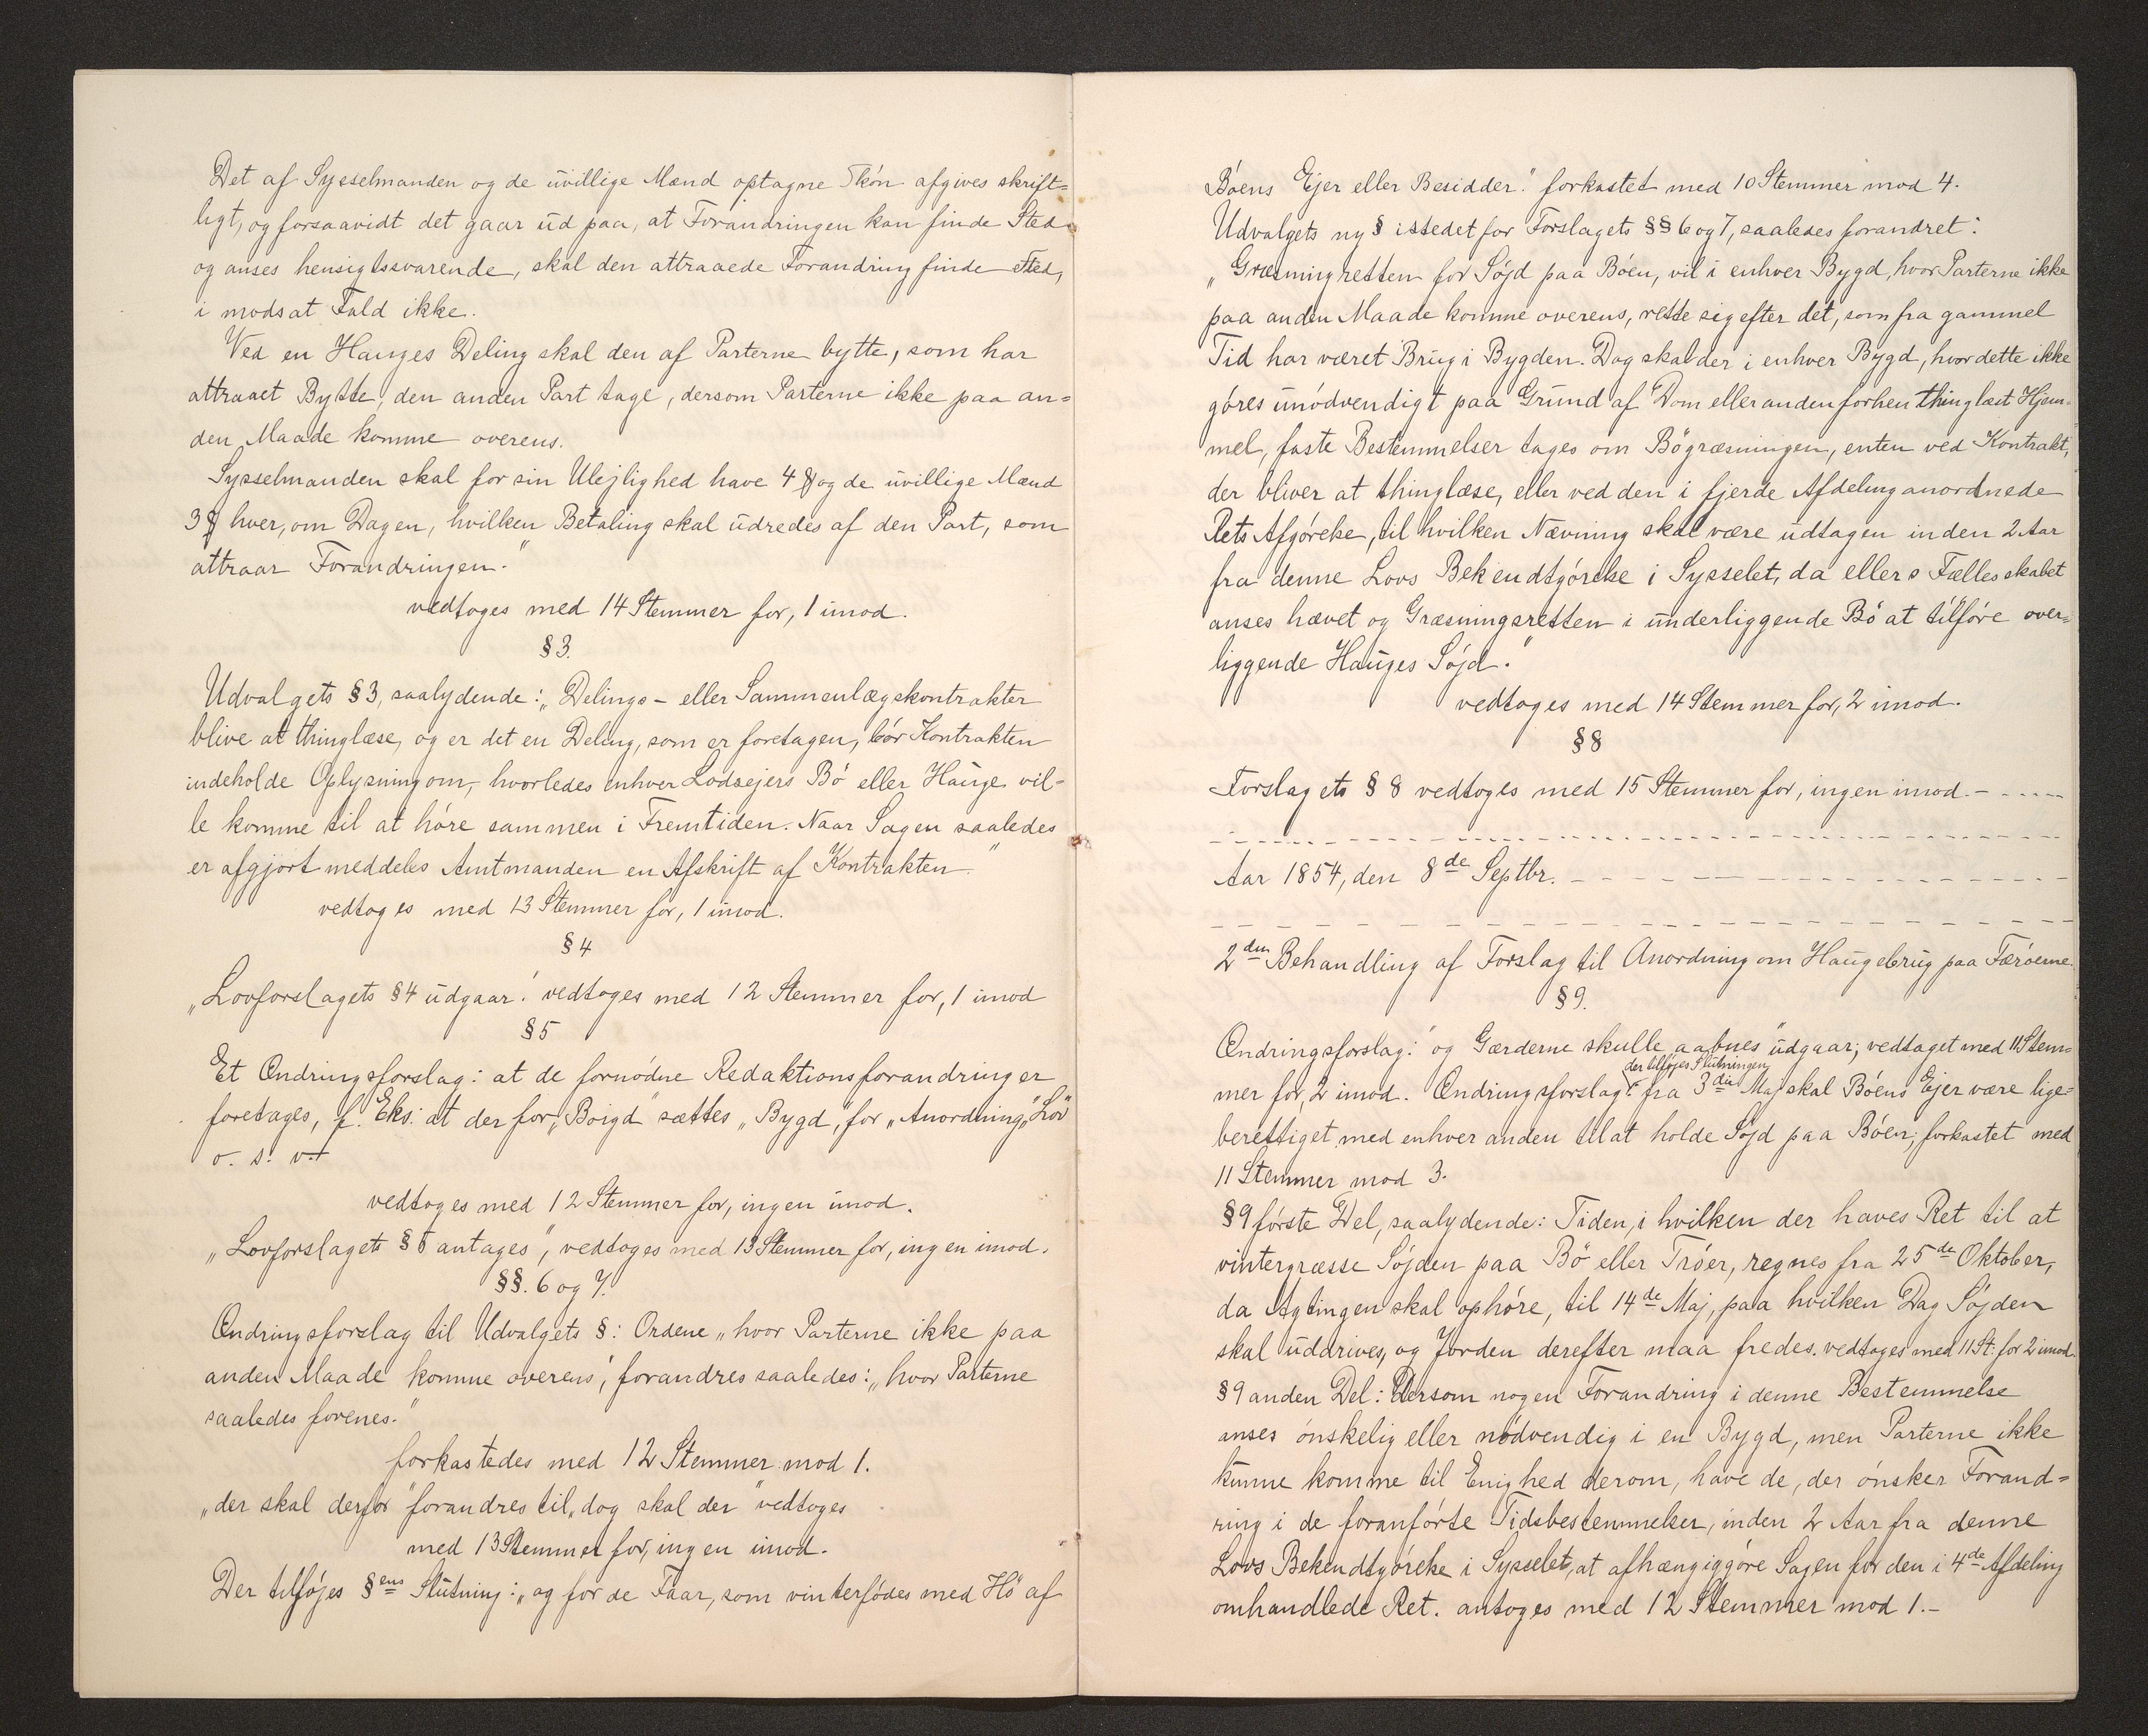 Det af Sysselmanden og de uvillige Mænd optagne Skön afgives skrift=
ligt, og forsaavidt det gaar ud paa, at Forandringen kan finde Sted
og anses hensigtssvarende, skal den attraaede Forandring finde Sted,
i modsat Fald ikke.
Ved en Hauges Deling skal den af Parterne bytte, som har
attraaet Bytte, den anden Part tage, dersom Parterne ikke paa an=
den Maade komme overens.
Sysselmanden skal for sin Ulejlighed have 4 ₰ og de uvillige Mænd
3 ₰ hver, om Dagen, hvilken Betaling skal udredes af den Part, som
attraar Forandringen."
vedtoges med 14 Stemmer for, 1 imod.
§ 3.
Udvalgets § 3, saalydende: „Delings- eller Sammenlægskontrakter
blive at thinglæse, og er det en Deling, som er foretagen, bör Kontrakten
indeholde Oplysning om, hvorledes enhver Lodsejers Bö eller Hauge vil-
le komme til at höre sammen i Fremtiden. Naar Sagen saaledes
er afgjort meddeles Amtmanden en Afskrift af Kontrakten."
vedtoges med 13 Stemmer for, 1 imod.
§ 4
„Lovforslagets § 4 udgaar." vedtoges med 12 Stemmer for, 1 imod
§ 5
Et Ændringsforslag: at de fornödne Redaktionsforandringer
foretages, f. Eks. at der for „Boigd" sættes „Bygd", for „Anordning" „Lov"
o. s. v.
vedtoges med 12 Stemmer for, ingen imod.
„Lovforslagets § 5 antages", vedtoges med 13 Stemmer for, ingen imod.
§§. 6 og 7.
Ændringsforslag til Udvalgets §: Ordene „hvor Parterne ikke paa
anden Maade komme overens", forandres saaledes: „hvor Parterne
saaledes forenes."
forkastedes med 12 Stemmer mod 1.
„der skal derfor" forandres til „dog skal der" vedtoges
med 13 Stemmer for, ingen imod.
Der tilföjes §ens Slutning: „og for de Faar, som vinterfödes med Hö af
Böens Ejer eller Besidder." forkastet med 10 Stemmer mod 4.
Udvalgets ny § istedet for Forslagets §§ 6 og 7, saaledes forandret:
„Græsningretten for Söjd paa Böen, vil i enhver Bygd, hvor Parterne ikke
paa anden Maade komme overens, rette sig efter det, som fra gammel
Tid har været Brug i Bygden. Dog skal der i enhver Bygd, hvor dette ikke
göres unödvendigt paa Grund af Dom eller anden forhen thinglæst Hjem-
mel, faste Bestemmelser tages om Bögræsningen, enten ved Kontrakt,
der bliver at thinglæse, eller ved den i fjerde Afdeling anordnede
Rets Afgörelse, til hvilken Nævning skal være udtagen inden 2 Aar
fra denne Lovs Bekendtgörelse i Sysselet, da ellers Fællesskabet
anses hævet og Græsningsretten i underliggende Bö at tilföre over=
liggende Hauges Söjd."
vedtoges med 14 Stemmer for, 2 imod.
§ 8
Forslagets § 8 vedtoges med 15 Stemmer for, ingen imod. - - - - -
Aar 1854, den 8de Septbr. - - - -
2den Behandling af Forslag til Anordning om Haugebrug paa Færöerne.
§ 9.
Ændringsforslag: "og Gærderne skulle aabnes" udgaar; vedtaget med 11 Stem=
der tilföjes Slutningen
mer for, 2 imod. Ændringsforslag: fra 3die Maj skal Böens Ejer være lige=
berettiget med enhver anden til at holde Söjd paa Böen; forkastet med
11 Stemmer mod 3.
§ 9 förste Del, saalydende: Tiden, i hvilken der haves Ret til at
vintergræsse Söjden paa Bö eller Tröer, regnes fra 25de Oktober,
da Agtingen skal ophöre, til 14de Maj, paa hvilken Dag Söjden
skal uddrives, og Jorden derefter maa fredes. vedtoges med 11 St. for 2 imod.
§ 9 anden Del: Dersom nogen Forandring i denne Bestemmelse
anses önskelig eller nödvendig i en Bygd, men Parterne ikke
kunne komme til Enighed derom, have de, der önsker Forand=
ring i de foranförte Tidsbestemmelser, inden 2 Aar fra denne
Lovs Bekendtgörelse i Sysselet, at afhængiggöre Sagen for den i 4de Afdeling
omhandlede Ret. antoges med 12 Stemmer mod 1.-